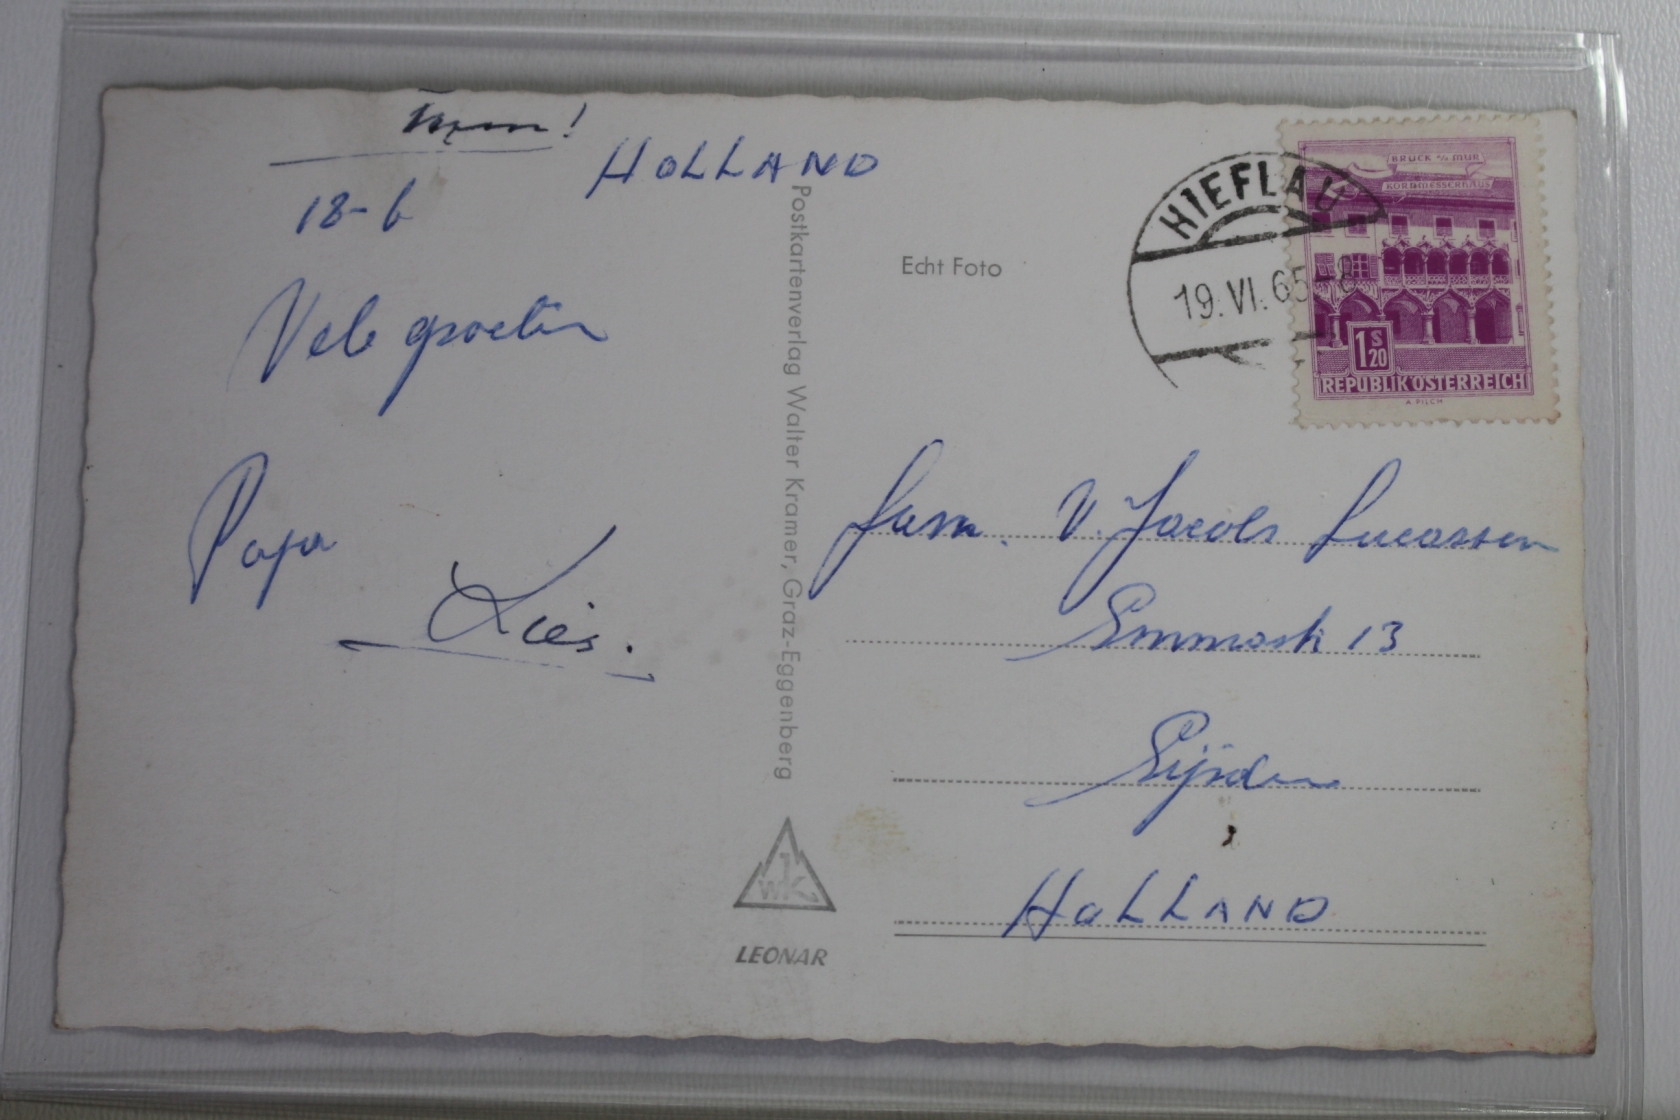 HOLLAND
18-6
Vele groeten
Papa
Lies.
Postkartenverlag Walter Kramer, Graz-Eggenberg
WK
LEONAR
Echt Foto
HIEFLAU
19.VI.65-8
BRUCK a/d MUR
KORNMESSERHAUS
1 S 20
REPUBLIK ÖSTERREICH
A. PILCH
Fam. V. Jacobs Lucassen
Emmastr 13
Eijsden
HOLLAND